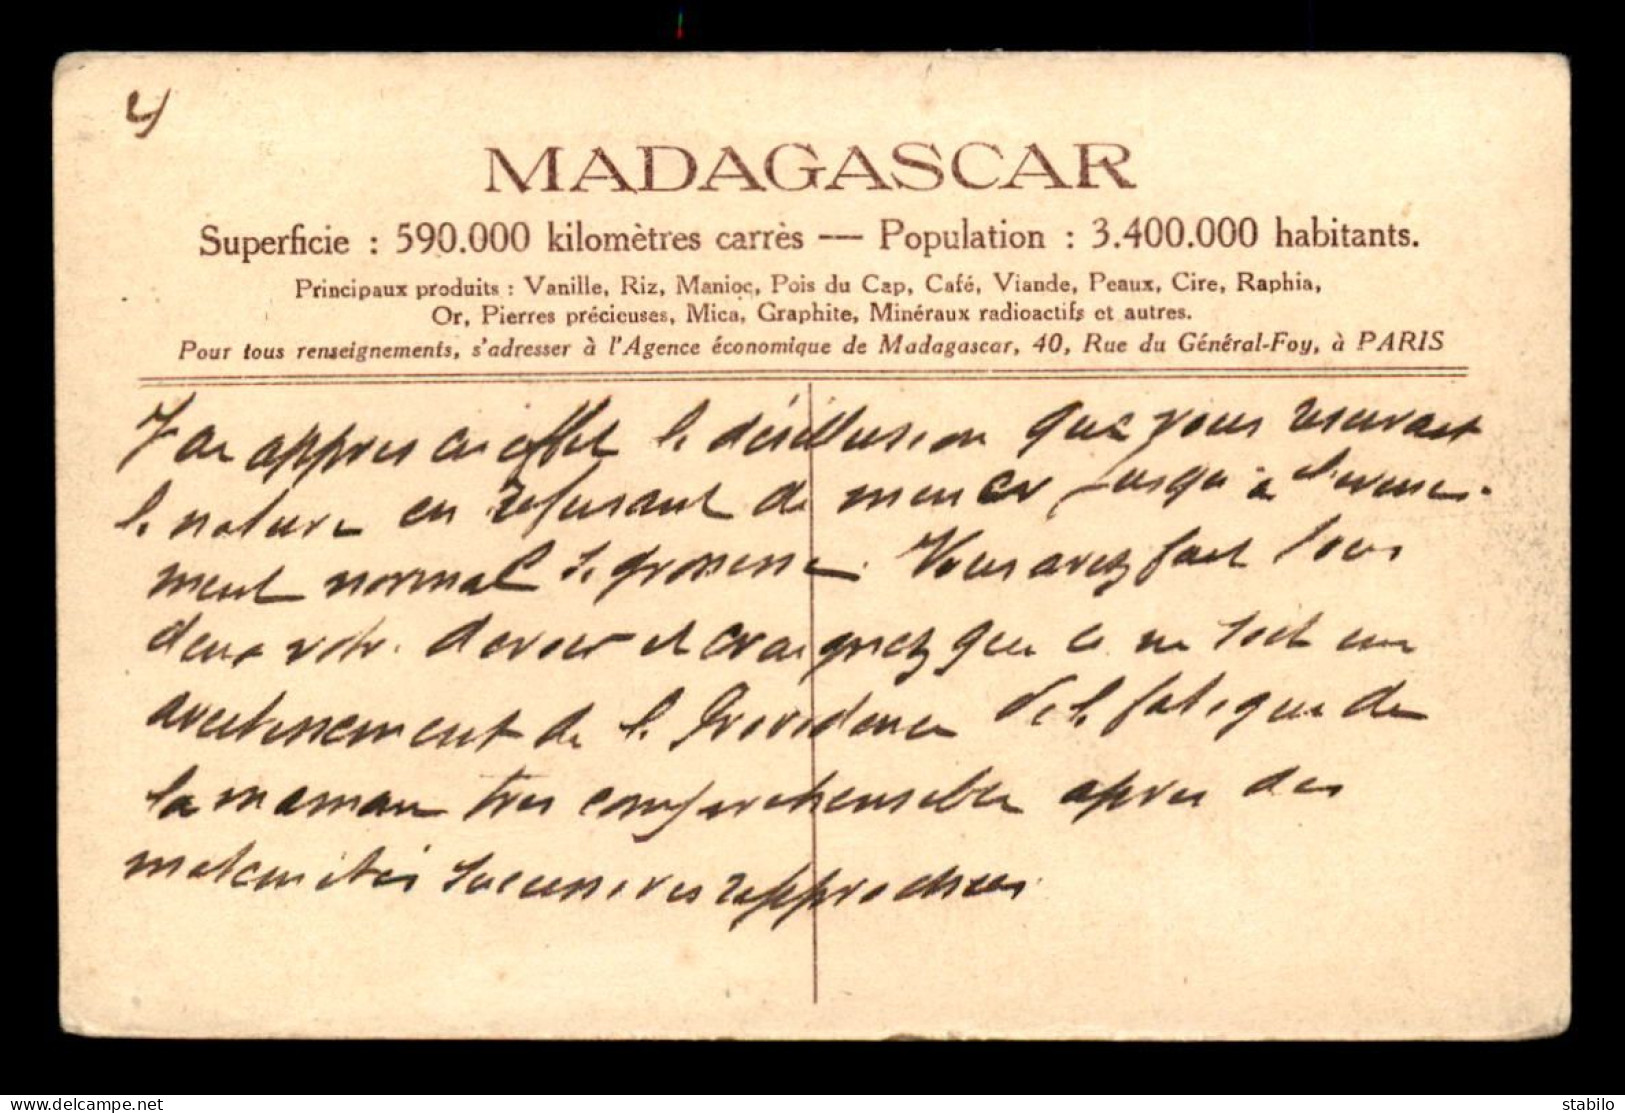 4
MADAGASCAR
Superficie : 590.000 kilomètres carrès — Population : 3.400.000 habitants.
Principaux produits : Vanille, Riz, Manioc, Pois du Cap, Café, Viande, Peaux, Cire, Raphia,
Or, Pierres précieuses, Mica, Graphite, Minéraux radioactifs et autres.
Pour tous renseignements, s'adresser à l'Agence économique de Madagascar, 40, Rue du Général-Foy, à PARIS
J'ai appris en effet la désillusion que vous réservait
la nature en refusant de mener jusqu'à l'évène-
ment normal la grossesse. Vous avez fait tous
deux votre devoir et craignez que ce ne soit un
avertissement de la Providence de la fatigue de
la maman très compréhensible après des
maternités successives rapprochées
delcampe.net
stabilo